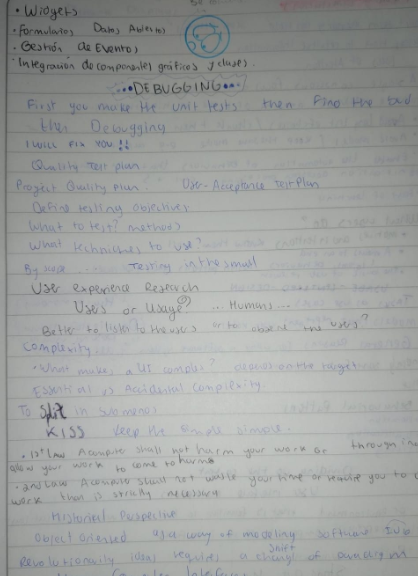 • Widgets
• Formularios Datos Abiertos
• Gestión de Eventos
• Integración de componentes gráficos y clases.
...DEBUGGING...
First you make the unit tests then find the bad
then Debugging
I WILL FIX YOU !!
Quality Test plan
Project Quality Plan. User-Acceptance Test Plan
Define testing objectives
What to test? methods
What techniques to use?
By scope ... Testing in the small
User experience Research
Uses or Usage? ... Humans...
Better to listen to the users or to observe the users?
Complexity
• What makes a UI complex? depends on the target
Essential vs Accidental Complexity.
To Split in submenus
KISS keep the simple simple.
• 1st Law A computer shall not harm your work or through
allow your work to come to harm
• 2nd Law A computer shall not waste your time or require you to
work than is strictly necessary
Historical Perspective
Object oriented as a way of modeling software
Revolutionary ideas requires a change of paradigm
shift